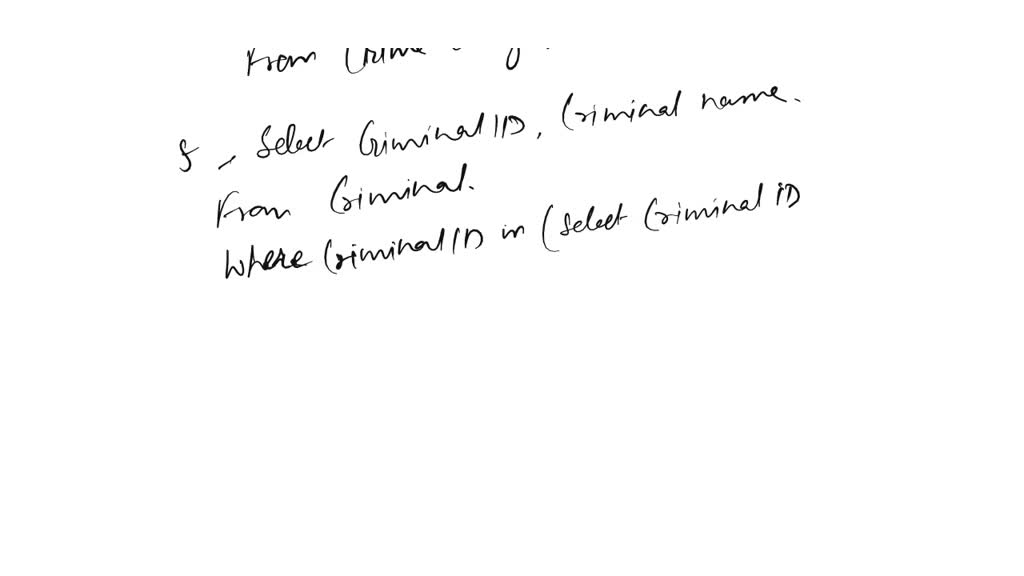 From Crime
5, Select CriminalID, Criminal name.
From Criminal.
Where CriminalID in (Select Criminal ID